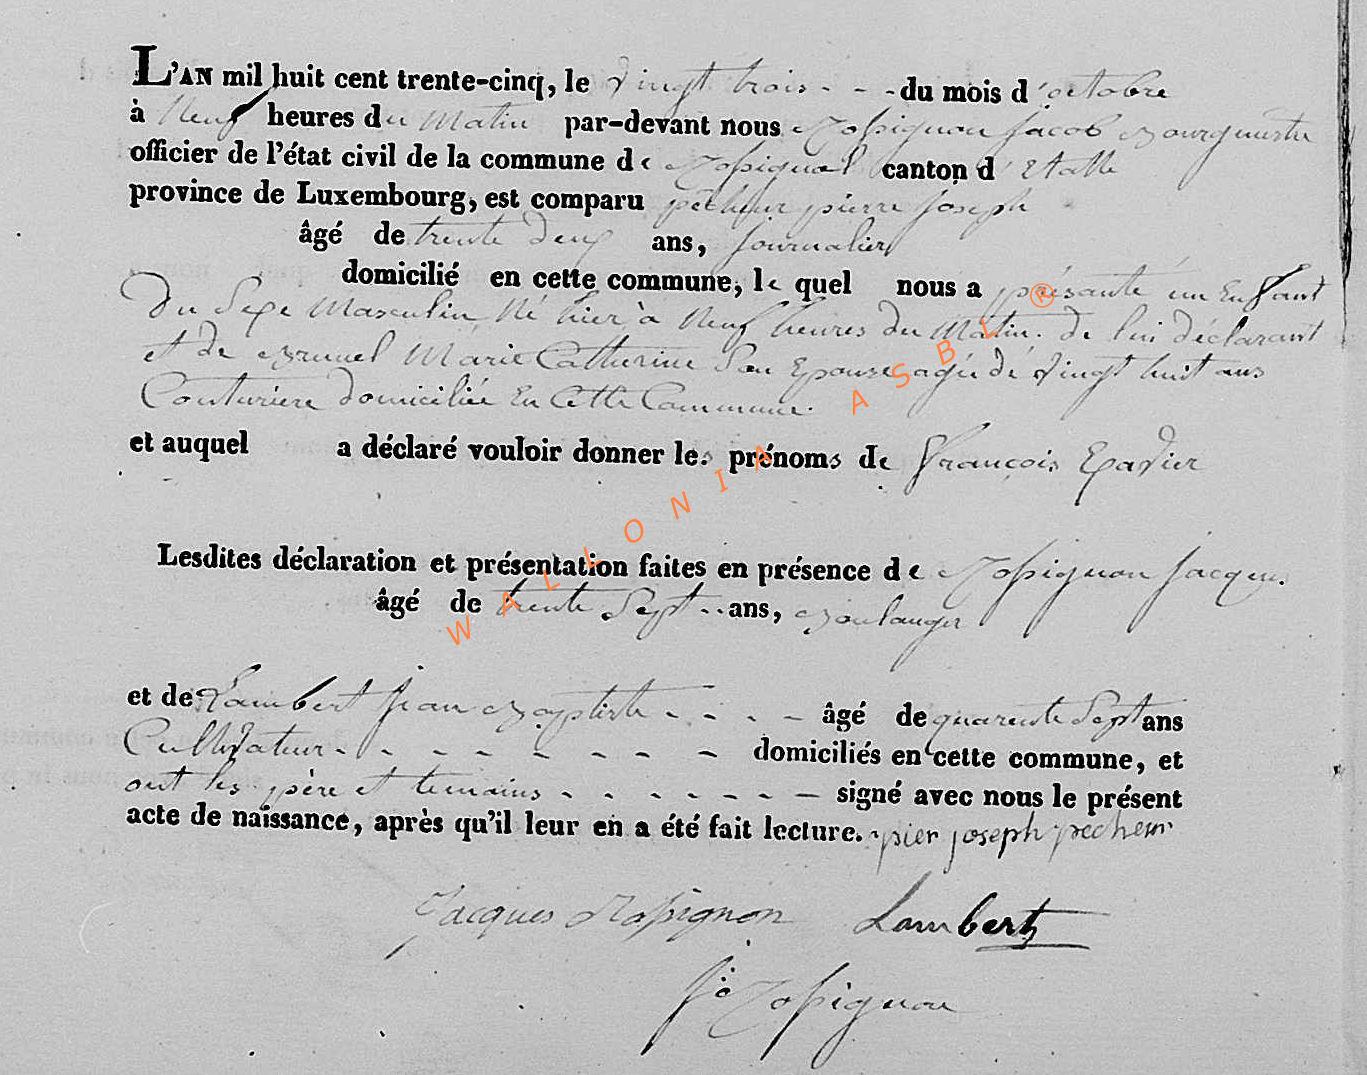 L'AN mil huit cent trente-cinq, le Vingt trois - - - du mois d'octobre
à Neuf heures du Matin par-devant nous Rossignon Jacob Bourgmestre
officier de l'état civil de la commune de Rossignol canton d'Etalle
province de Luxembourg, est comparu pêcheur pierre Joseph
âgé de trente deux ans, Journalier
domicilié en cette commune, le quel nous a présenté un Enfant
Du Sexe Masculin Né hier à Neuf heures du Matin. de lui déclarant
et de Brunel Marie Catherine Son Epouse agée de Vingt huit ans
Couturière domiciliée En Cette Commune.
et auquel a déclaré vouloir donner les prénoms de François Xavier
Lesdites déclaration et présentation faites en présence de Rossignon Jacques.
âgé de trente Sept - - ans, Boulanger
et de Lambert Jean Baptiste - - - - âgé de quarente Sept ans
Cultivateur - - - - - - - - domiciliés en cette commune, et
ont les père et temoins - - - - - - - signé avec nous le présent
acte de naissance, après qu'il leur en a été fait lecture. pier joseph pecheur
Jacques Rossignon Lambert
Jc Rossignon
WALLONIA ASBL ®